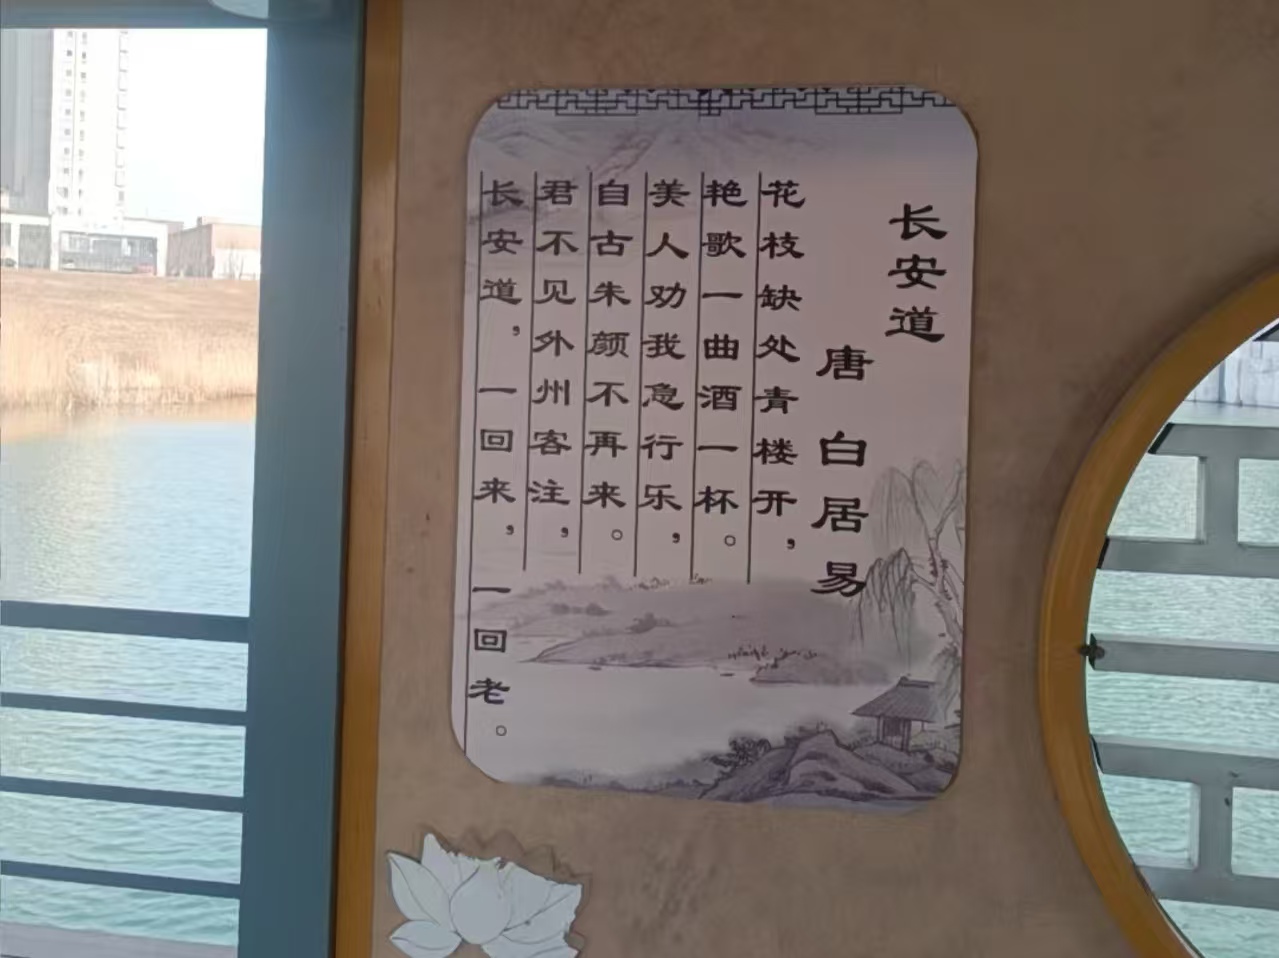 长安道
唐 白居易
花枝缺处青楼开，
艳歌一曲酒一杯。
美人劝我急行乐，
自古朱颜不再来。
君不见外州客注，
长安道，一回来，一回老。